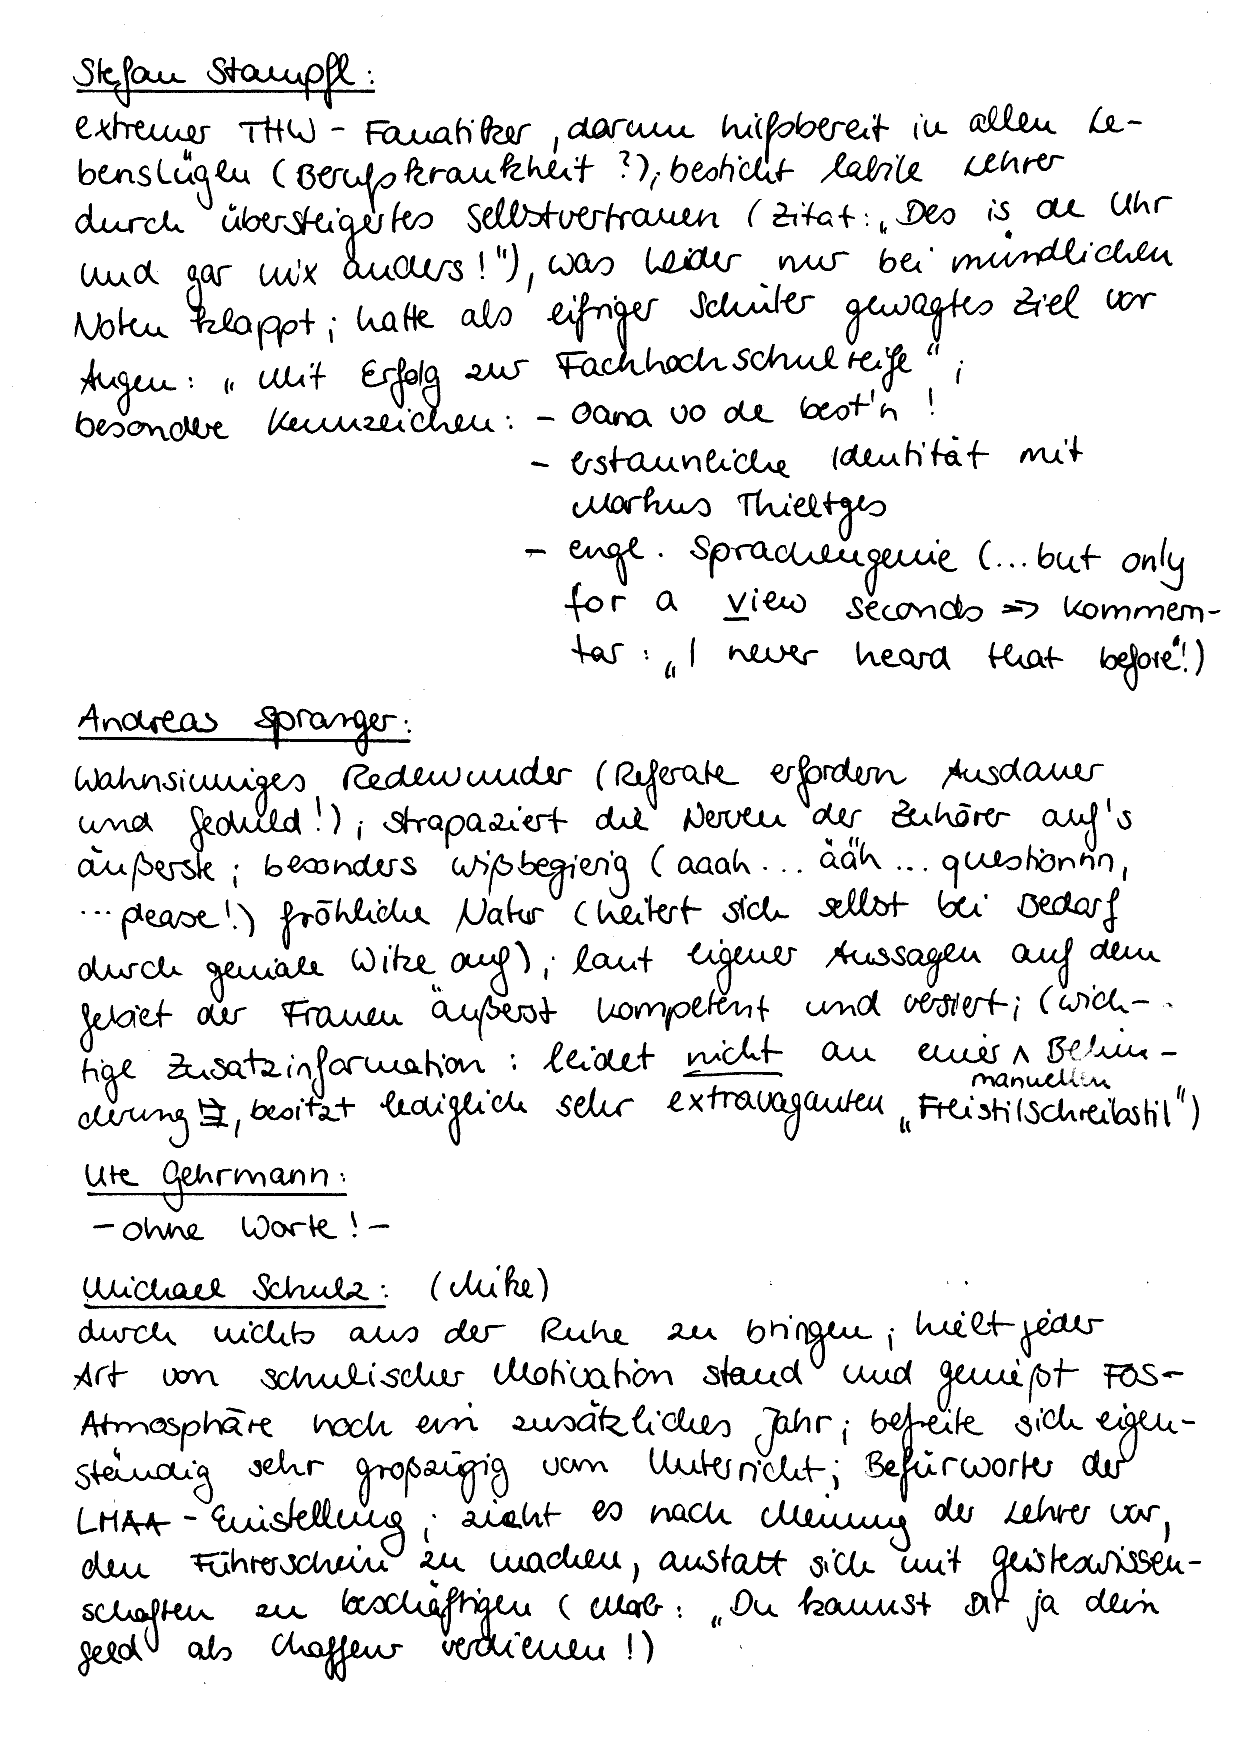 Stefan Stampfl:
extremer THW - Fanatiker, darum hilfsbereit in allen Le-
benslügen (Berufskrankheit ?), besticht labile Lehrer
durch übersteigertes Selbstvertrauen (Zitat: „Des is de Uhr
und gar nix anders!"), was leider nur bei mündlichen
Noten klappt; hatte als eifriger Schüler gewagtes Ziel vor
Augen: „Mit Erfolg zur Fachhochschulreife";
besondere Kennzeichen: - Oana vo de best'n!
- erstaunliche Identität mit
Markus Thieltges
- engl. Sprachengenie (...but only
for a view seconds => Kommen-
tar: „I never heard that before"!)
Andreas Spranger:
Wahnsinniges Redewunder (Referate erfordern Ausdauer
und Geduld!); strapaziert die Nerven der Zuhörer auf's
äußerste; besonders wißbegierig (aaah... ääh... questionnn,
...please!) fröhliche Natur (heitert sich selbst bei Bedarf
durch geniale Witze auf); laut eigener Aussagen auf dem
Gebiet der Frauen äußerst kompetent und versiert; (wich-
tige Zusatzinformation: leidet nicht an einer ∧ Behin-
manuellen
derung, besitzt lediglich sehr extravaganten „Freistilschreibstil")
Ute Gehrmann:
- ohne Worte! -
Michael Schulz: (Mike)
durch nichts aus der Ruhe zu bringen; hielt jeder
Art von schulischer Motivation stand und genießt FOS-
Atmosphäre noch ein zusätzliches Jahr; befreite sich eigen-
ständig sehr großzügig vom Unterricht; Befürworter der
LMAA - Einstellung; zieht es nach Meinung der Lehrer vor,
den Führerschein zu machen, anstatt sich mit Geisteswissen-
schaften zu beschäftigen („Du kannst Dir ja dein
Geld als Chaffeur verdienen!)